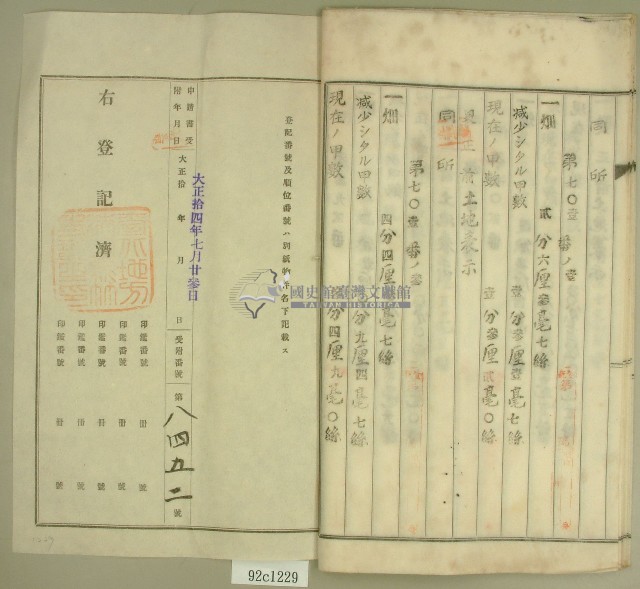 同 所
第七〇壹番ノ壹
一畑 貳分六厘參毫七絲
減少シタル甲數 壹分參厘壹毫七絲
現在ノ甲數 壹分參厘貳毫〇絲
更正前土地表示
同 所
第七〇壹番ノ
一畑 四分四厘 毫七絲
減少シタル甲數 分九厘四毫七絲
現在ノ甲數 分四厘九毫〇絲
登記番號及順位番號ハ別紙物件名下記載ス
大正拾四年七月廿參日
申請書受附年月日 大正拾 年 月 日 受附番號 第八四五二號
右登記濟
印鑑番號 冊 號
印鑑番號 冊 號
印鑑番號 冊 號
印鑑番號 冊 號
印鑑番號 冊 號
國史館臺灣文獻館
TAIWAN HISTORICA
92c1229